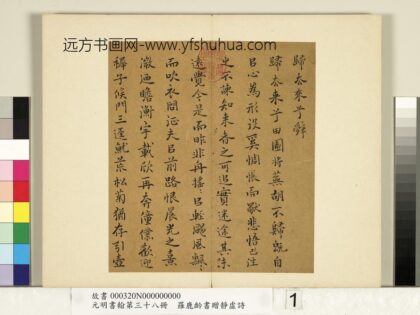 远方书画网-www.yfshuhua.com
歸去來兮辭
歸去來兮田園將蕪胡不歸既自
㠯心為形役奚惆悵而獨悲悟已往
之不諫知來者之可追實迷途其未
遠覺今是而昨非舟搖㠯輕颺風飄
而吹衣問征夫㠯前路恨晨光之熹
微迺瞻衡宇載欣再奔僮僕歡迎
稚子候門三逕就荒松菊猶存引壺
故書 000320N000000000
元明書翰第三十八冊 羅鹿齡書贈靜虛詩
1